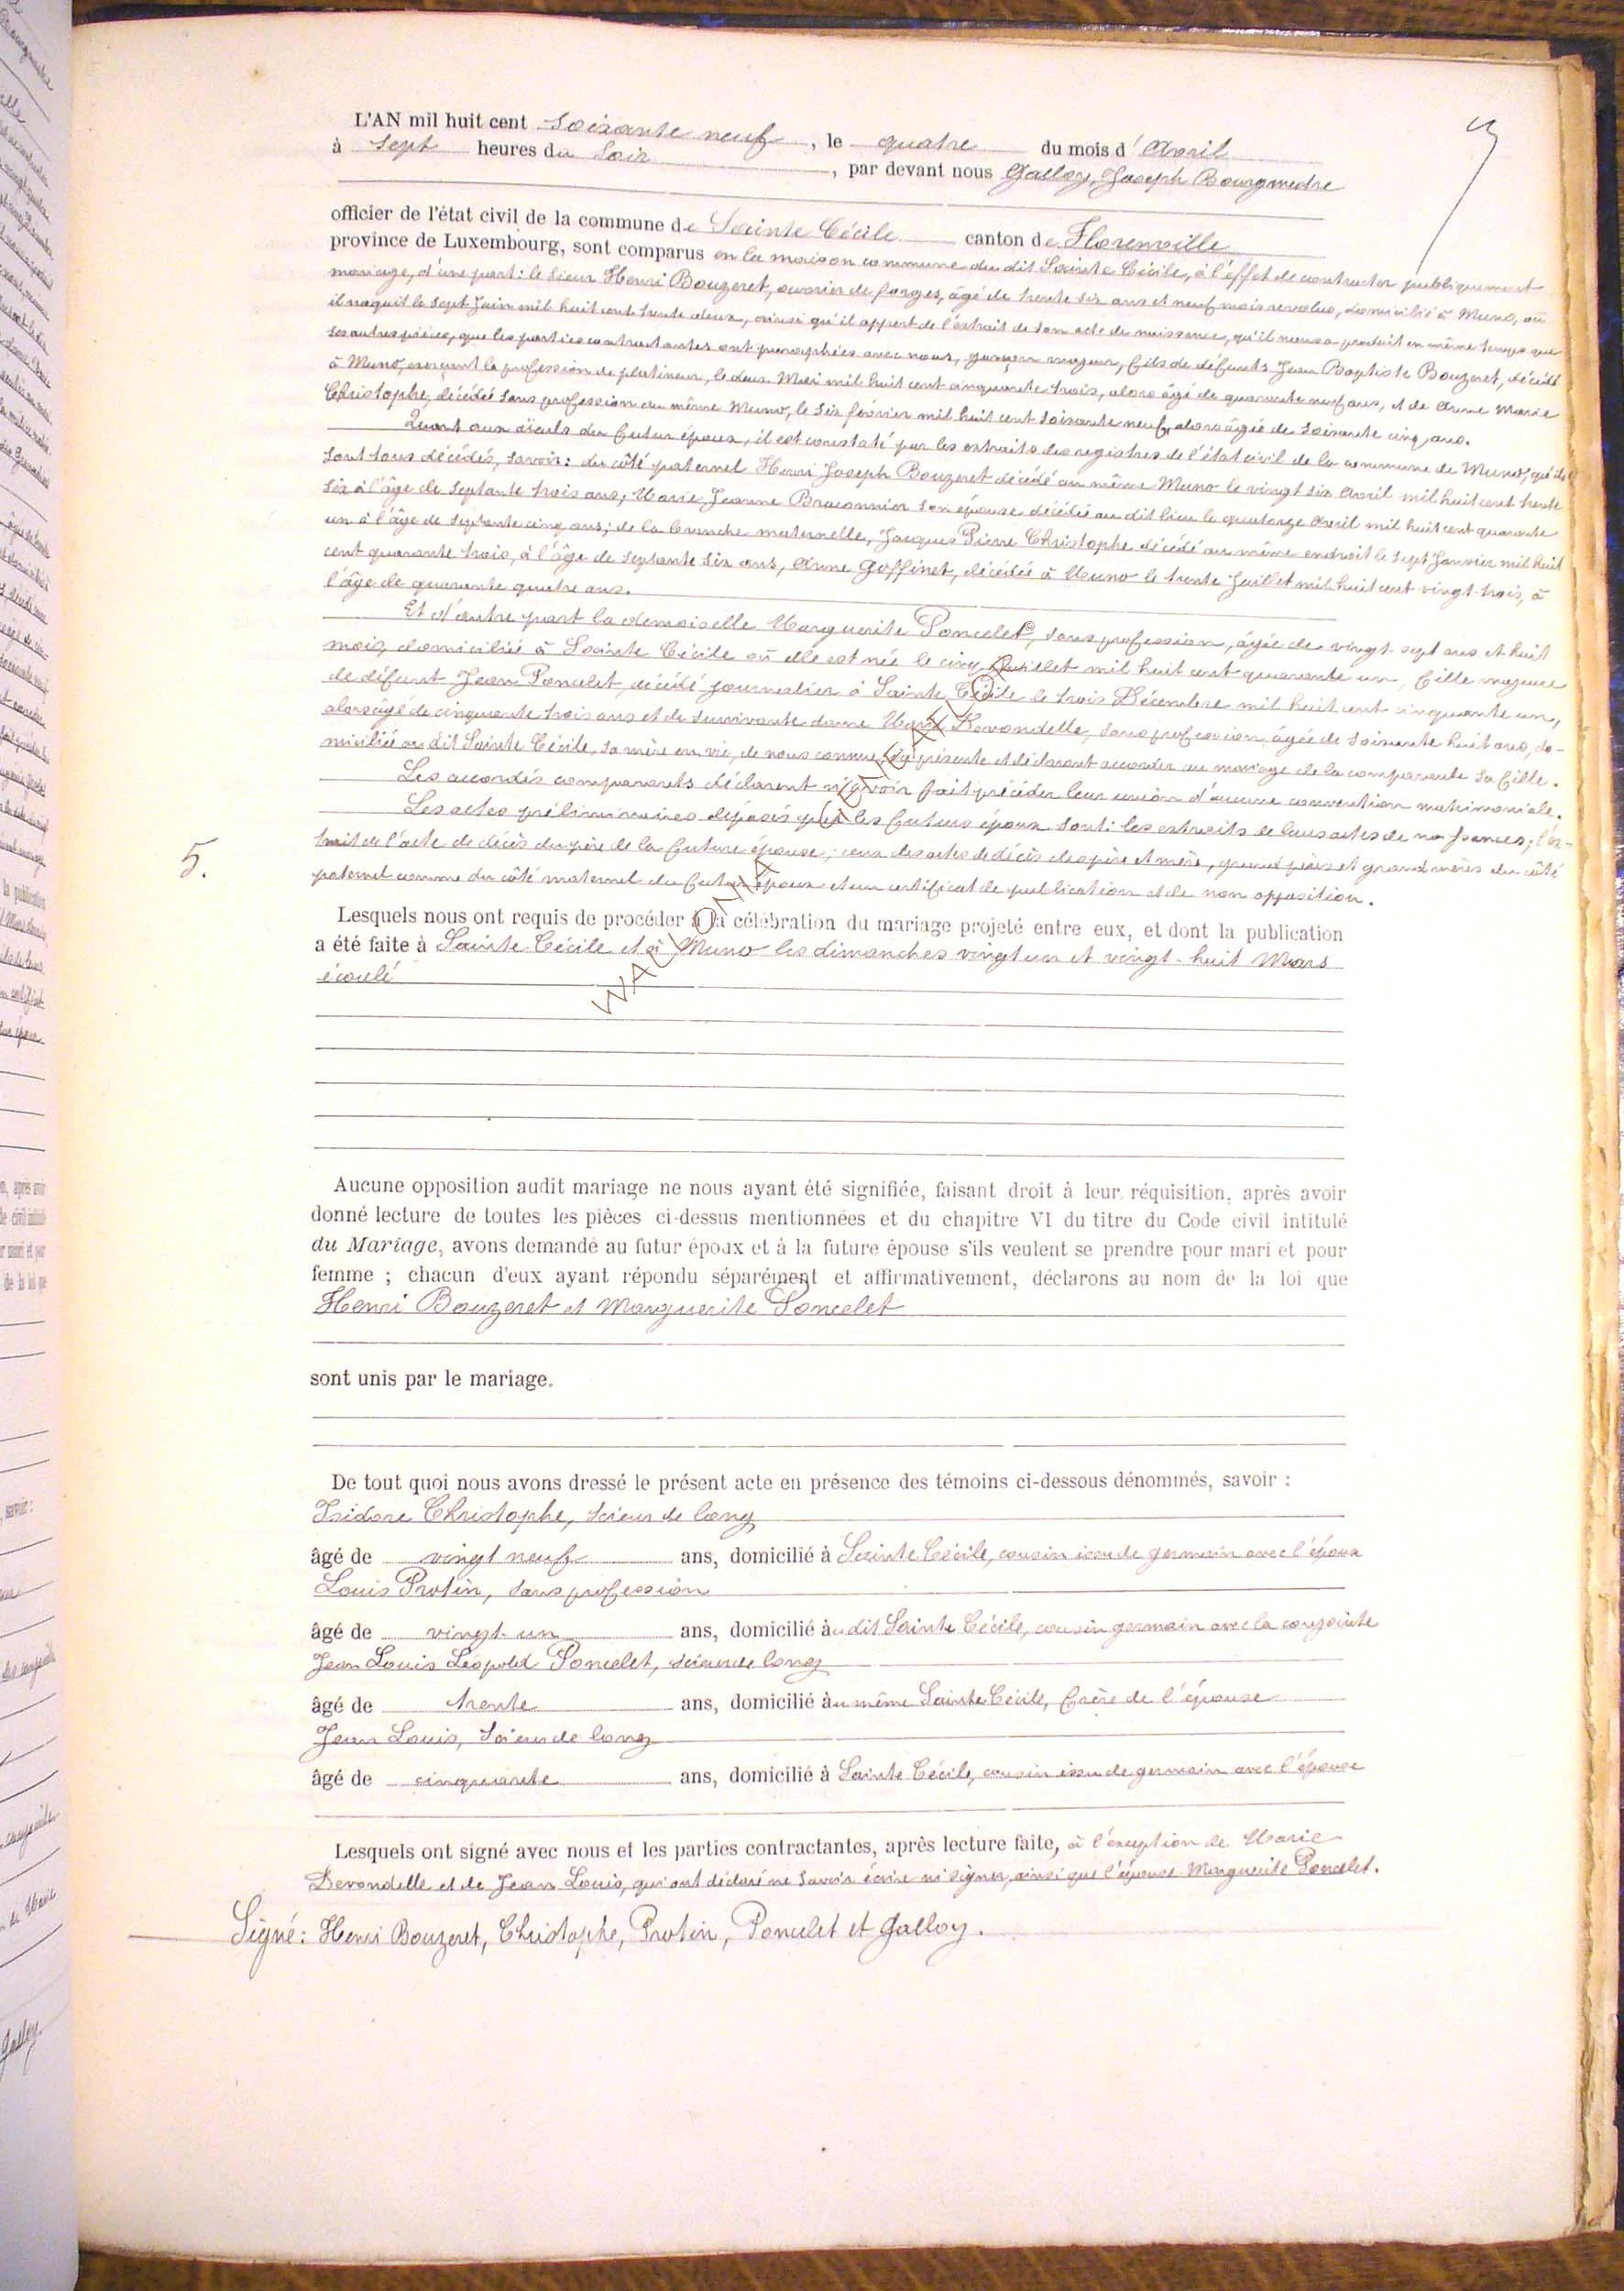 L'AN mil huit cent soixante neuf, le quatre du mois d'Avril
à sept heures du Soir, par devant nous Galloy, Joseph Bourgmestre
officier de l'état civil de la commune de Sainte Cécile canton de Florenville
province de Luxembourg, sont comparus en la maison commune du dit Sainte Cécile, à l'effet de contracter publiquement
mariage, d'une part: le Sieur Henri Bouzeret, ouvrier de forges, âgé de trente six ans et neuf mois revolus, domicilié à Muno, où
il naquit le sept Juin mil huit cent trente deux, ainsi qu'il appert de l'extrait de son acte de naissance, qu'il nous a produit en même temps que
ses autres pièces, que les parties contractantes ont paraphées avec nous, garçon majeur, fils de défunts Jean Baptiste Bouzeret, décédé
à Muno, exerçant la profession de platineur, le deux Mai mil huit cent cinquante trois, alors âgé de quarante neuf ans, et de Anne Marie
Christophe, décédée sans profession au même Muno, le six février mil huit cent soixante neuf, alors âgée de soixante cinq ans.
Quant aux aïeuls du futur époux, il est constaté par les extraits des registres de l'état civil de la commune de Muno, qu'ils
sont tous décédés, savoir: du côté paternel Henri Joseph Bouzeret décédé au même Muno le vingt six Avril mil huit cent trente
six à l'âge de septante trois ans; Marie Jeanne Braconnier son épouse décédée au dit lieu le quatorze Avril mil huit cent quarante
un à l'âge de septante cinq ans; de la branche maternelle, Jacques Pierre Christophe décédé au même endroit le sept Janvier mil huit
cent quarante trois, à l'âge de septante six ans, Anne Goffinet, décédée à Muno le trente Juillet mil huit cent vingt-trois, à
l'âge de quarante quatre ans.
Et d'autre part la demoiselle Marguerite Poncelet, sans profession, âgée de vingt-sept ans et huit
mois, domiciliée à Sainte Cécile où elle est née le cinq Juillet mil huit cent quarante un, fille majeure
de défunt Jean Poncelet, décédé journalier à Sainte Cécile le trois Décembre mil huit cent cinquante un,
alors âgé de cinquante trois ans et de survivante dame Marie Devondelle, sans profession, âgée de soixante huit ans, do-
miciliée au dit Sainte Cécile, sa mère en vie, de nous connue, ici présente et déclarant accorder au mariage de la comparante sa fille.
Les accordés comparants déclarent n'avoir fait précéder leur union d'aucune convention matrimoniale.
Les actes préliminaires déposés par les futurs époux sont: les extraits de leurs actes de naissances; l'ex-
trait de l'acte de décès du père de la future épouse; ceux des actes de décès des père et mère, grand pères et grand mères du côté
paternel comme du côté maternel du futur époux et un certificat de publication et de non opposition.
5.
Lesquels nous ont requis de procéder à la célébration du mariage projeté entre eux, et dont la publication
a été faite à Sainte Cécile et à Muno les dimanches vingt un et vingt-huit Mars
écoulé
Aucune opposition audit mariage ne nous ayant été signifiée, faisant droit à leur réquisition, après avoir
donné lecture de toutes les pièces ci-dessus mentionnées et du chapitre VI du titre du Code civil intitulé
du Mariage, avons demandé au futur époux et à la future épouse s'ils veulent se prendre pour mari et pour
femme ; chacun d'eux ayant répondu séparément et affirmativement, déclarons au nom de la loi que
Henri Bouzeret et Marguerite Poncelet
sont unis par le mariage.
De tout quoi nous avons dressé le présent acte en présence des témoins ci-dessous dénommés, savoir :
Isidore Christophe, scieur de long
âgé de vingt neuf ans, domicilié à Sainte Cécile, cousin issu de germain avec l'époux
Louis Protin, sans profession
âgé de vingt-un ans, domicilié au dit Sainte Cécile, cousin germain avec la conjointe
Jean Louis Léopold Poncelet, scieur de long
âgé de trente ans, domicilié au même Sainte Cécile, frère de l'épouse
Jean Louis, scieur de long
âgé de cinquante ans, domicilié à Sainte Cécile, cousin issu de germain avec l'épouse
Lesquels ont signé avec nous et les parties contractantes, après lecture faite, à l'exception de Marie
Devondelle et de Jean Louis, qui ont déclaré ne savoir écrire ni signer, ainsi que l'épouse Marguerite Poncelet.
Signé: Henri Bouzeret, Christophe, Protin, Poncelet et Galloy.